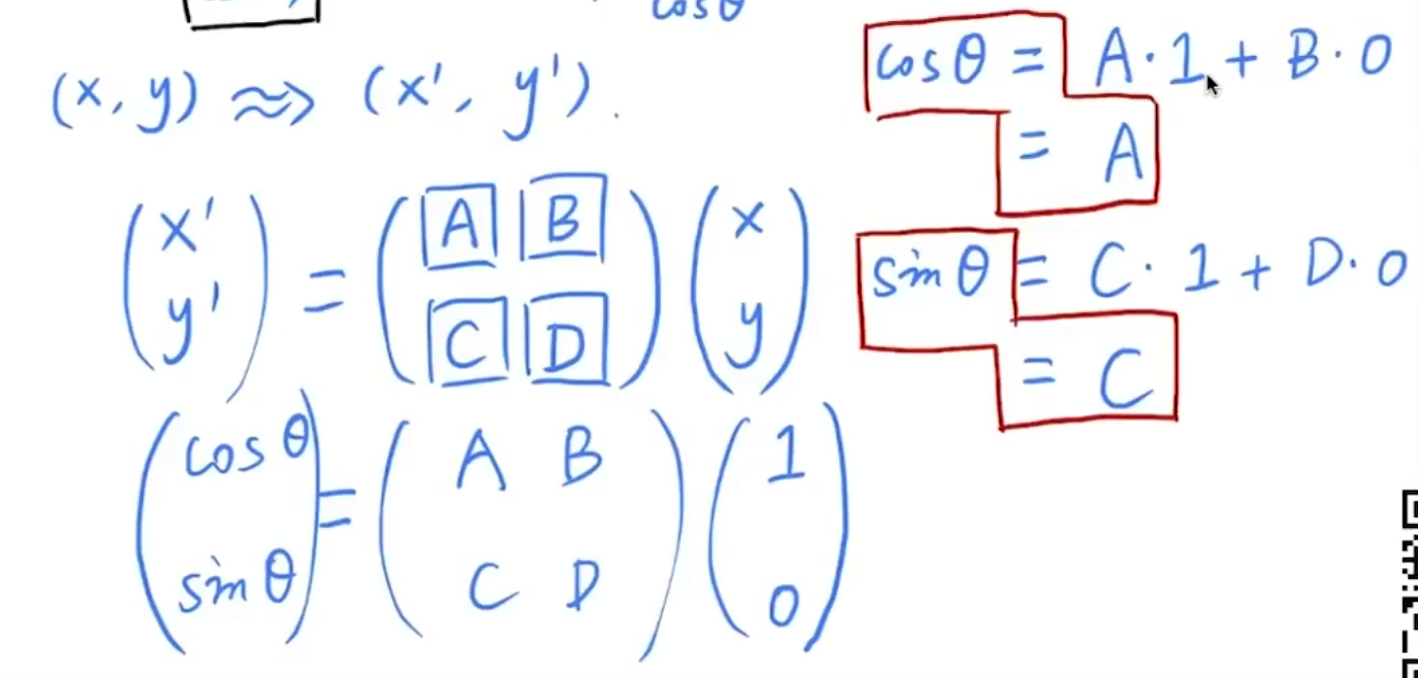 cosθ
(x, y) ⇝ (x', y').
(x' y') = (A B C D) (x y)
(cosθ sinθ) = (A B C D) (1 0)
cosθ = A·1 + B·0
= A
sinθ = C·1 + D·0
= C